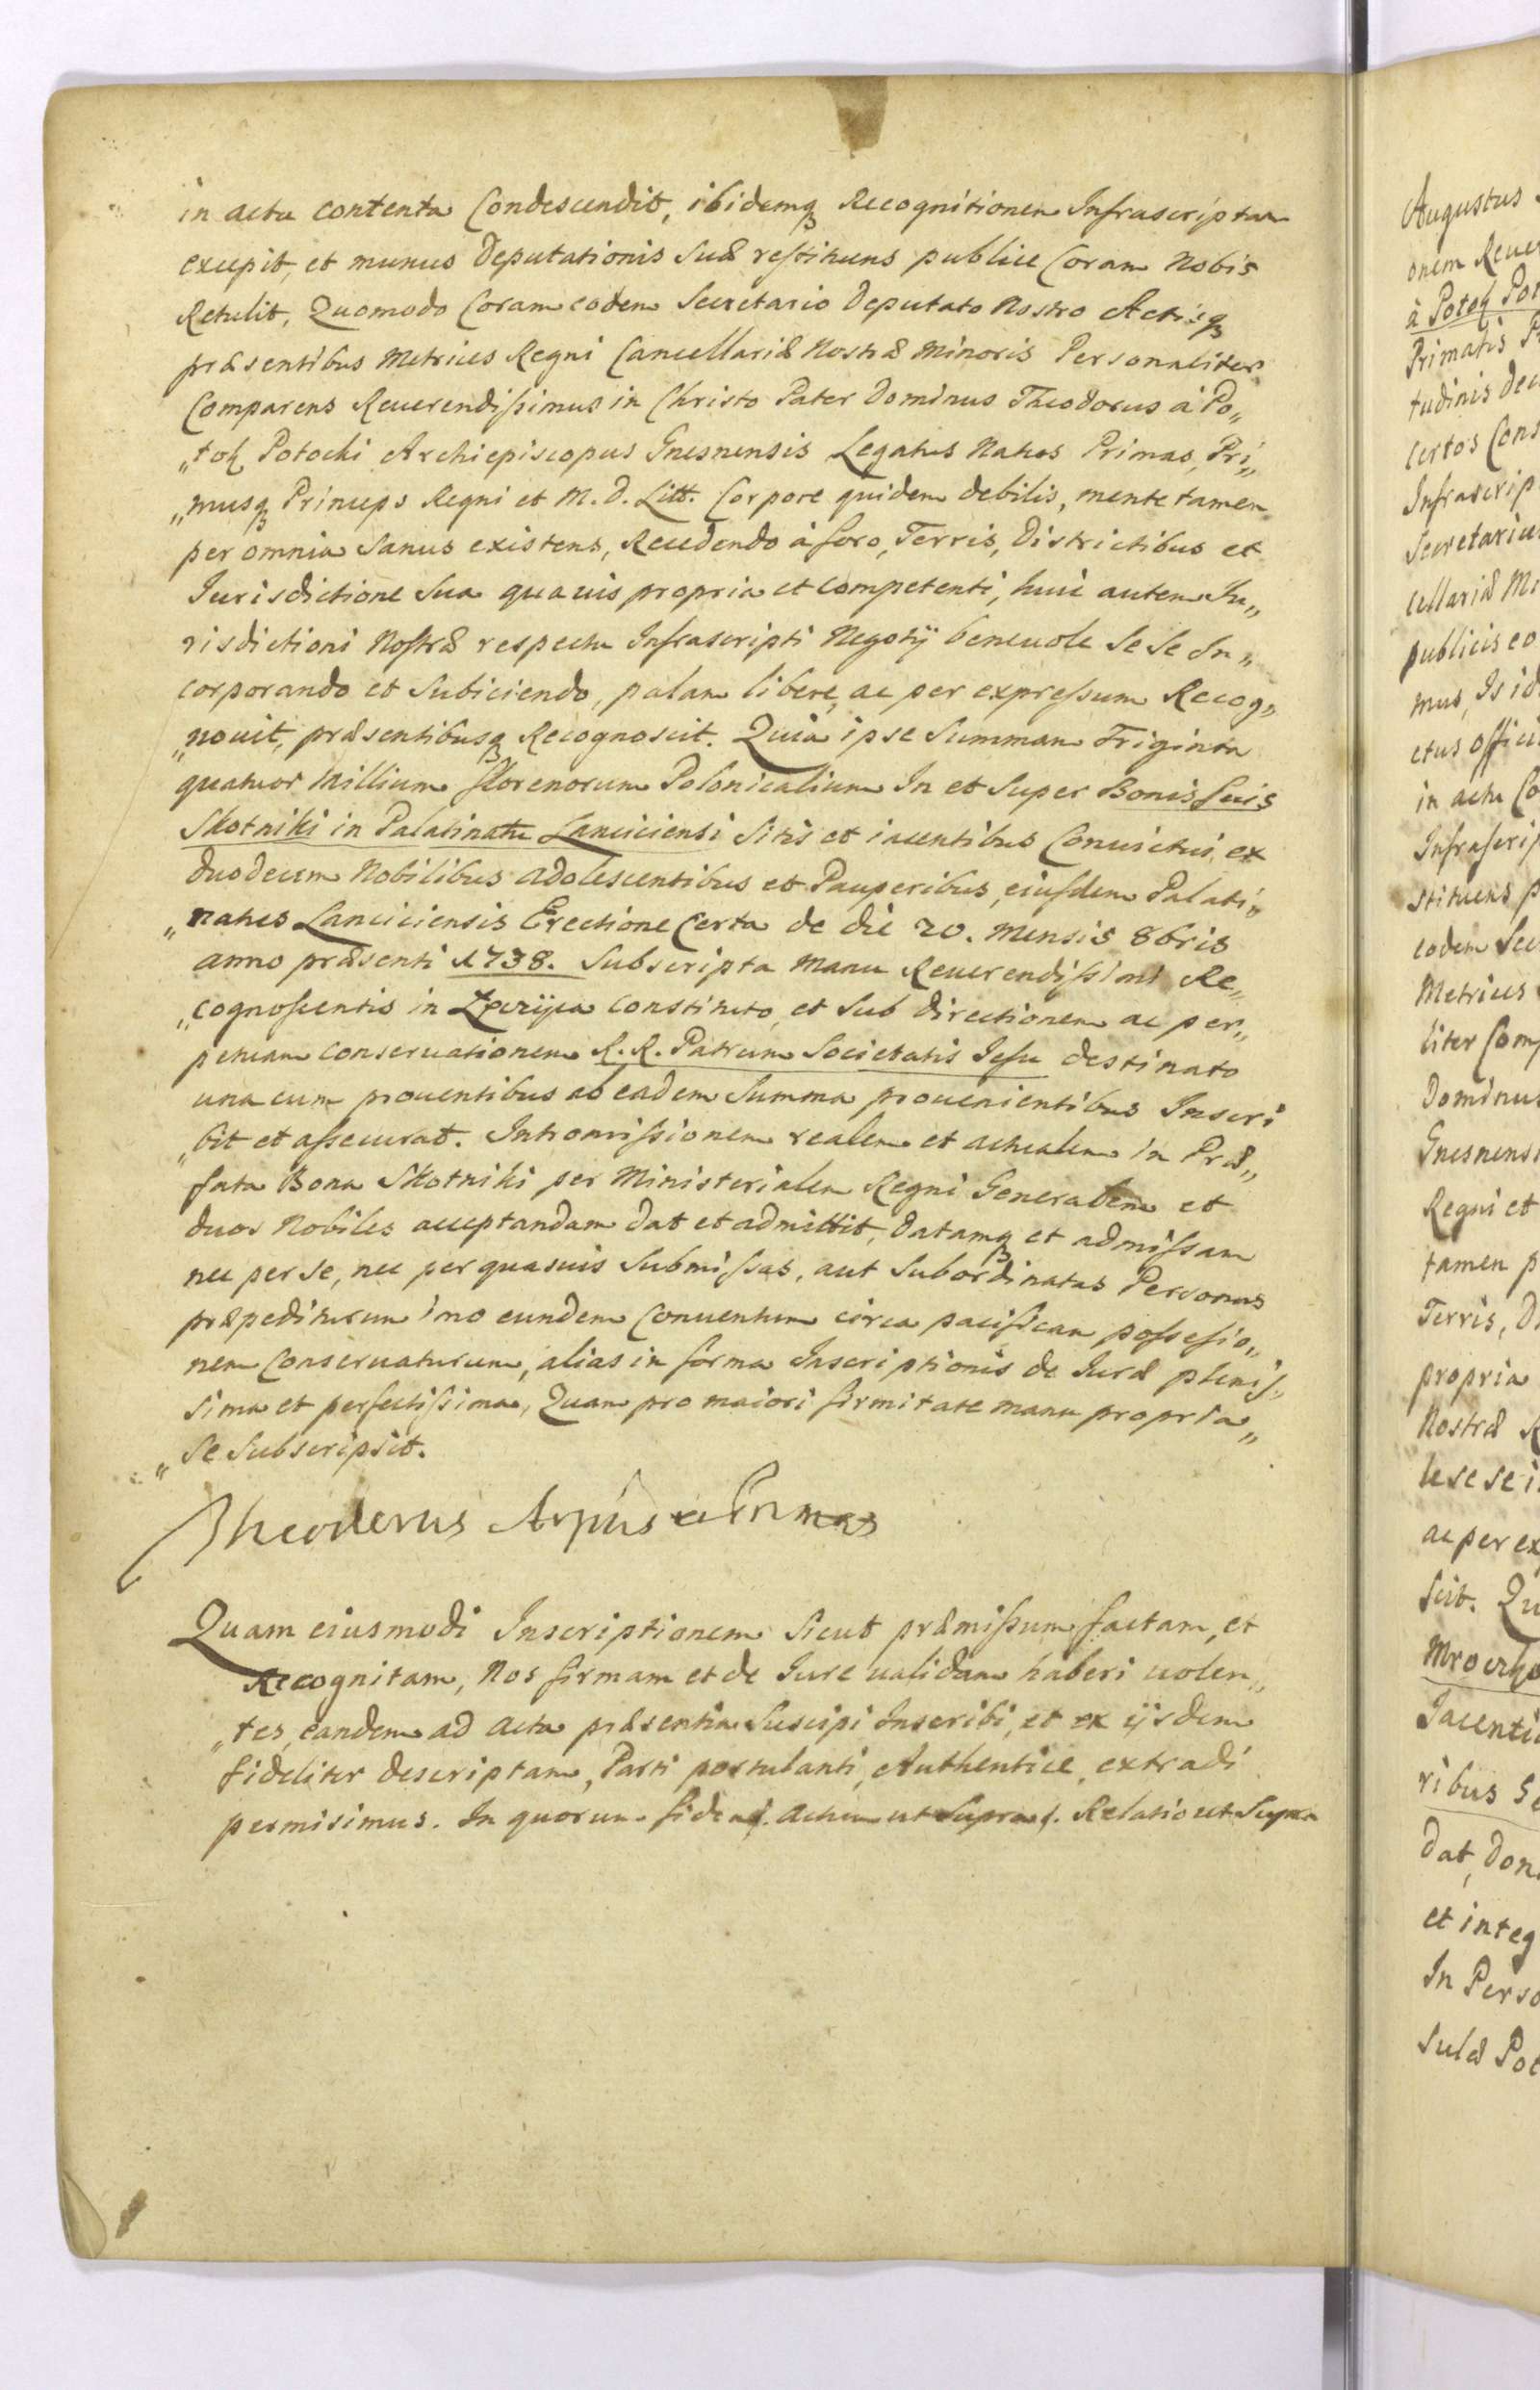 in actu contenta Condescendit, ibidemq3 Recognitionem Infrascriptam
excepit, et munus Deputationis Suæ restituens publice Coram Nobis
Retulit, Quomodo Coram eodem Secretario Deputato Nostro Actisq3
præsentibus Metrices Regni Cancellariæ Nostræ Minoris Personaliter
Comparens Reuerendissimus in Christo Pater Dominus Theodorus à Po„
„tok Potocki Archiepiscopus Gnesnensis Legatus Natus Primas, Pri„
„musq3 Princeps Regni et M. D. Litt. Corpore quidem debilis, mente tamen
per omnia Sanus existens, Recedendo à foro, Terris, Districtibus et
Jurisdictione Sua quauis propria et competenti, huic autem Ju„
risdictioni Nostræ respectu Infrascripti Negotÿ beneuole Se Se In„
corporando et Subiciendo, palam libere, ac per expressum Recog„
„nouit, præsentibusq3 Recognoscit. Quia ipse Summam Triginta
quatuor Millium florenorum Polonicalium In et Super Bonis Suis
Skotniki in Palatinatu Lanciciensi Sitis et iacentibus Conuictui, ex
duodecim Nobilibus adolescentibus et Pauperibus, eiusdem Palati„
„natus Lanciciensis Erectione Certa de die 20. Mensis 8bris
anno præsenti 1738. Subscripta Manu Reuerendissimi Re„
„cognoscentis in constituto, et Sub directionem ac per„
petuam conseruationem R. R. Patrum Societatis Jesu destinato
una cum prouentibus ab eadem Summa prouenientibus Inscri
„bit et assecurat. Intromissionem realem et actualem in Præ„
fata Bona Skotniki per Ministerialem Regni Generalem et
duos Nobiles acceptandam dat et admittit, datamq3 et admissam
nec per se, nec per quasuis Submissas, aut Subordinatas Personas
præpediturum imo eundem Conuentum circa pacificam possessio„
nem Conseruaturum, alias in forma Inscriptionis de Juræ plenis„
sima et perfectissima, Quam pro maiori firmitate manu propria„
„Se Subscripsit.
Theodorus Arpus Primas
Quam eiusmodi Inscriptionem Sicut præmissum factam, et
Recognitam, Nos firmam et de Jure ualidam haberi uolen„
„tes, eandem ad Acta præsentia Suscipi Inscribi, et ex ijsdem
fideliter descriptam, Parti postulanti, Authentice, extradi
permisimus. In quorum fidem. Actum ut Supra. Relatio ut Supra
Augustus
onem Reue
à Potok Pot
Primatis
tudinis
Certos Cons
Infrascrip
Secretariu
cellariæ Mi
publicis eo
mus, Is id
ctus offici
in actu Co
Infrascrip
stituens p
eodem Sec
Metrices
liter Comp
Dominus
Gnesnensi
Regni et
tamen p
Terris, D
propria
Nostræ R
le se se i
ac per ex
scit. Qu
Jacenti
ribus S
dat, don
et integ
In Perso
Sulæ Pot